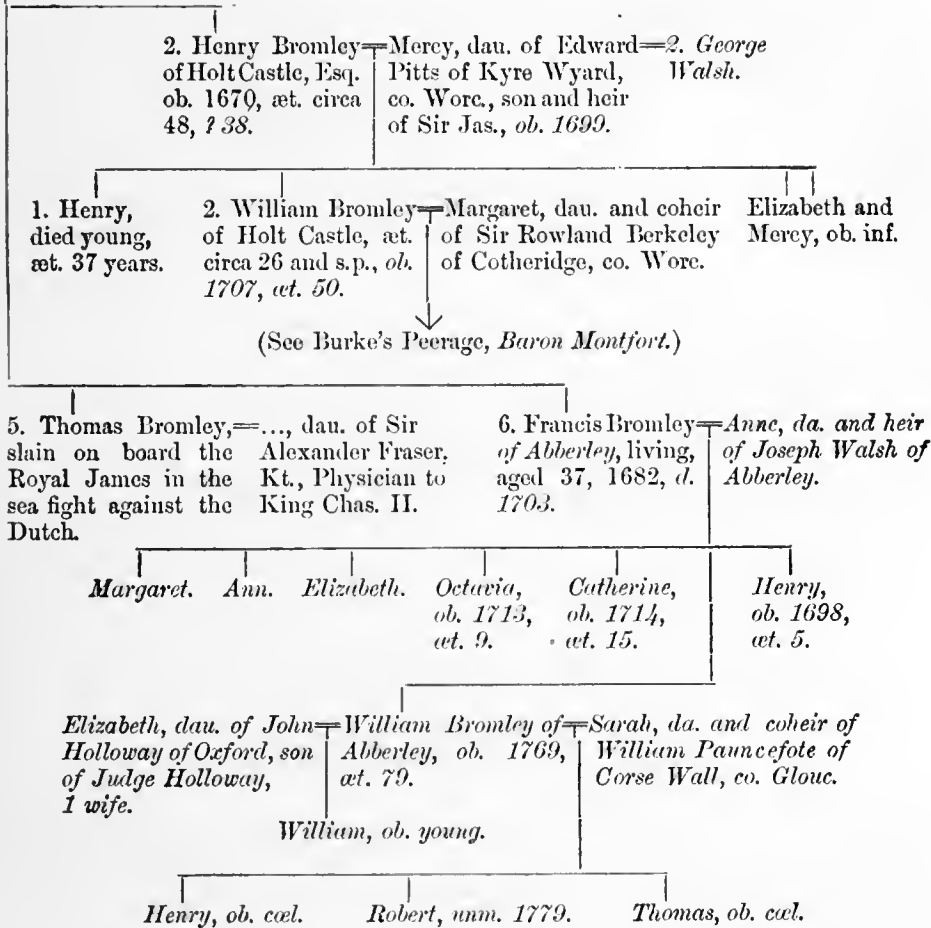 2. Henry Bromley
of Holt Castle, Esq.
ob. 1670, æt. circa
48, ? 38.
Mercy, dau. of Edward
Pitts of Kyre Wyard,
co. Worc., son and heir
of Sir Jas., ob. 1699.
2. George
Walsh.
1. Henry,
died young,
æt. 37 years.
2. William Bromley
of Holt Castle, æt.
circa 26 and s.p., ob.
1707, æt. 50.
Margaret, dau. and coheir
of Sir Rowland Berkeley
of Cotheridge, co. Worc.
Elizabeth and
Mercy, ob. inf.
(See Burke's Peerage, Baron Montfort.)
5. Thomas Bromley,
slain on board the
Royal James in the
sea fight against the
Dutch.
..., dau. of Sir
Alexander Fraser,
Kt., Physician to
King Chas. II.
6. Francis Bromley
of Abberley, living,
aged 37, 1682, d.
1703.
Anne, da. and heir
of Joseph Walsh of
Abberley.
Margaret.
Ann.
Elizabeth.
Octavia,
ob. 1713,
æt. 9.
Catherine,
ob. 1714,
æt. 15.
Henry,
ob. 1698,
æt. 5.
Elizabeth, dau. of John
Holloway of Oxford, son
of Judge Holloway,
1 wife.
William Bromley of
Abberley, ob. 1769,
æt. 79.
Sarah, da. and coheir of
William Pauncefote of
Corse Wall, co. Glouc.
William, ob. young.
Henry, ob. cœl.
Robert, unm. 1779.
Thomas, ob. cœl.